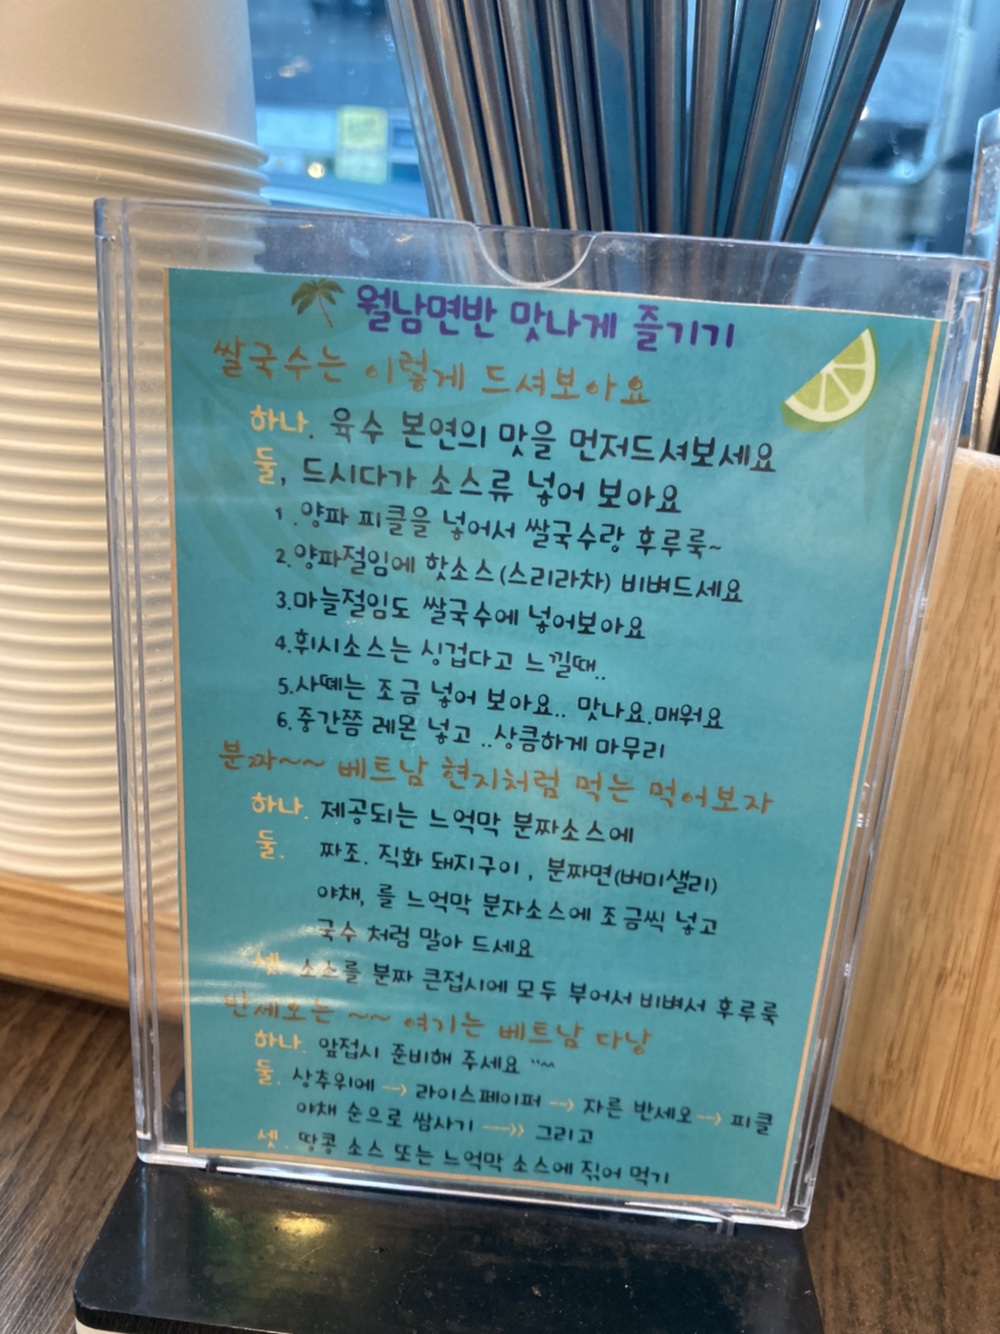 월남면반 맛나게 즐기기
쌀국수는 이렇게 드셔보아요
하나. 육수 본연의 맛을 먼저드셔보세요
둘, 드시다가 소스류 넣어 보아요
1.양파 피클을 넣어서 쌀국수랑 후루룩~
2.양파절임에 핫소스(스리라차) 비벼드세요
3.마늘절임도 쌀국수에 넣어보아요
4.휘시소스는 싱겁다고 느낄때..
5.사떼는 조금 넣어 보아요.. 맛나요.매워요
6.중간쯤 레몬 넣고 ..상큼하게 마무리
분짜~~ 베트남 현지처럼 먹는 먹어보자
하나. 제공되는 느억막 분짜소스에
둘. 짜조. 직화 돼지구이, 분짜면(버미샐리)
야채, 를 느억막 분자소스에 조금씩 넣고
국수 처럼 말아 드세요
셋. 소스를 분짜 큰접시에 모두 부어서 비벼서 후루룩
반세오는 ~~ 여기는 베트남 다낭
하나. 앞접시 준비해 주세요 ~~
둘. 상추위에 → 라이스페이퍼 → 자른 반세오 → 피클
야채 순으로 쌈사기 →» 그리고
셋. 땅콩 소스 또는 느억막 소스에 찍어 먹기